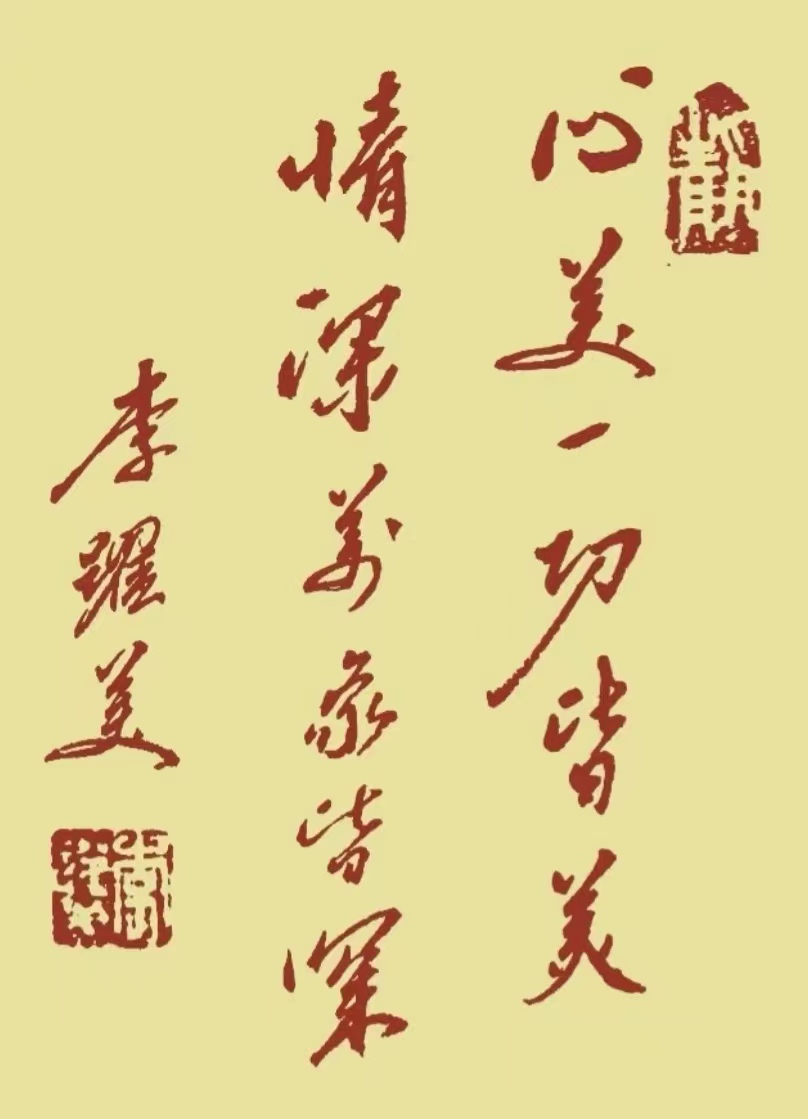 心美一切皆美
情深萬象皆深
李躍美